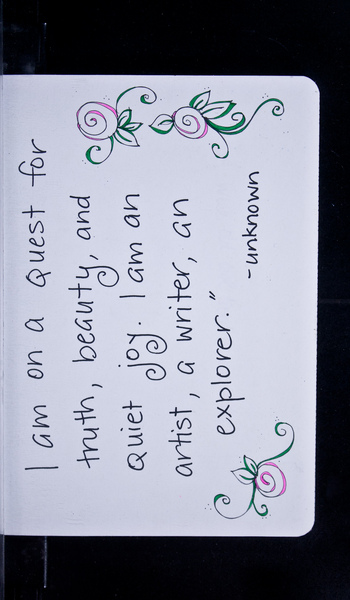 I am on a quest for
truth, beauty, and
quiet joy. I am an
artist, a writer, an
explorer."
-unknown